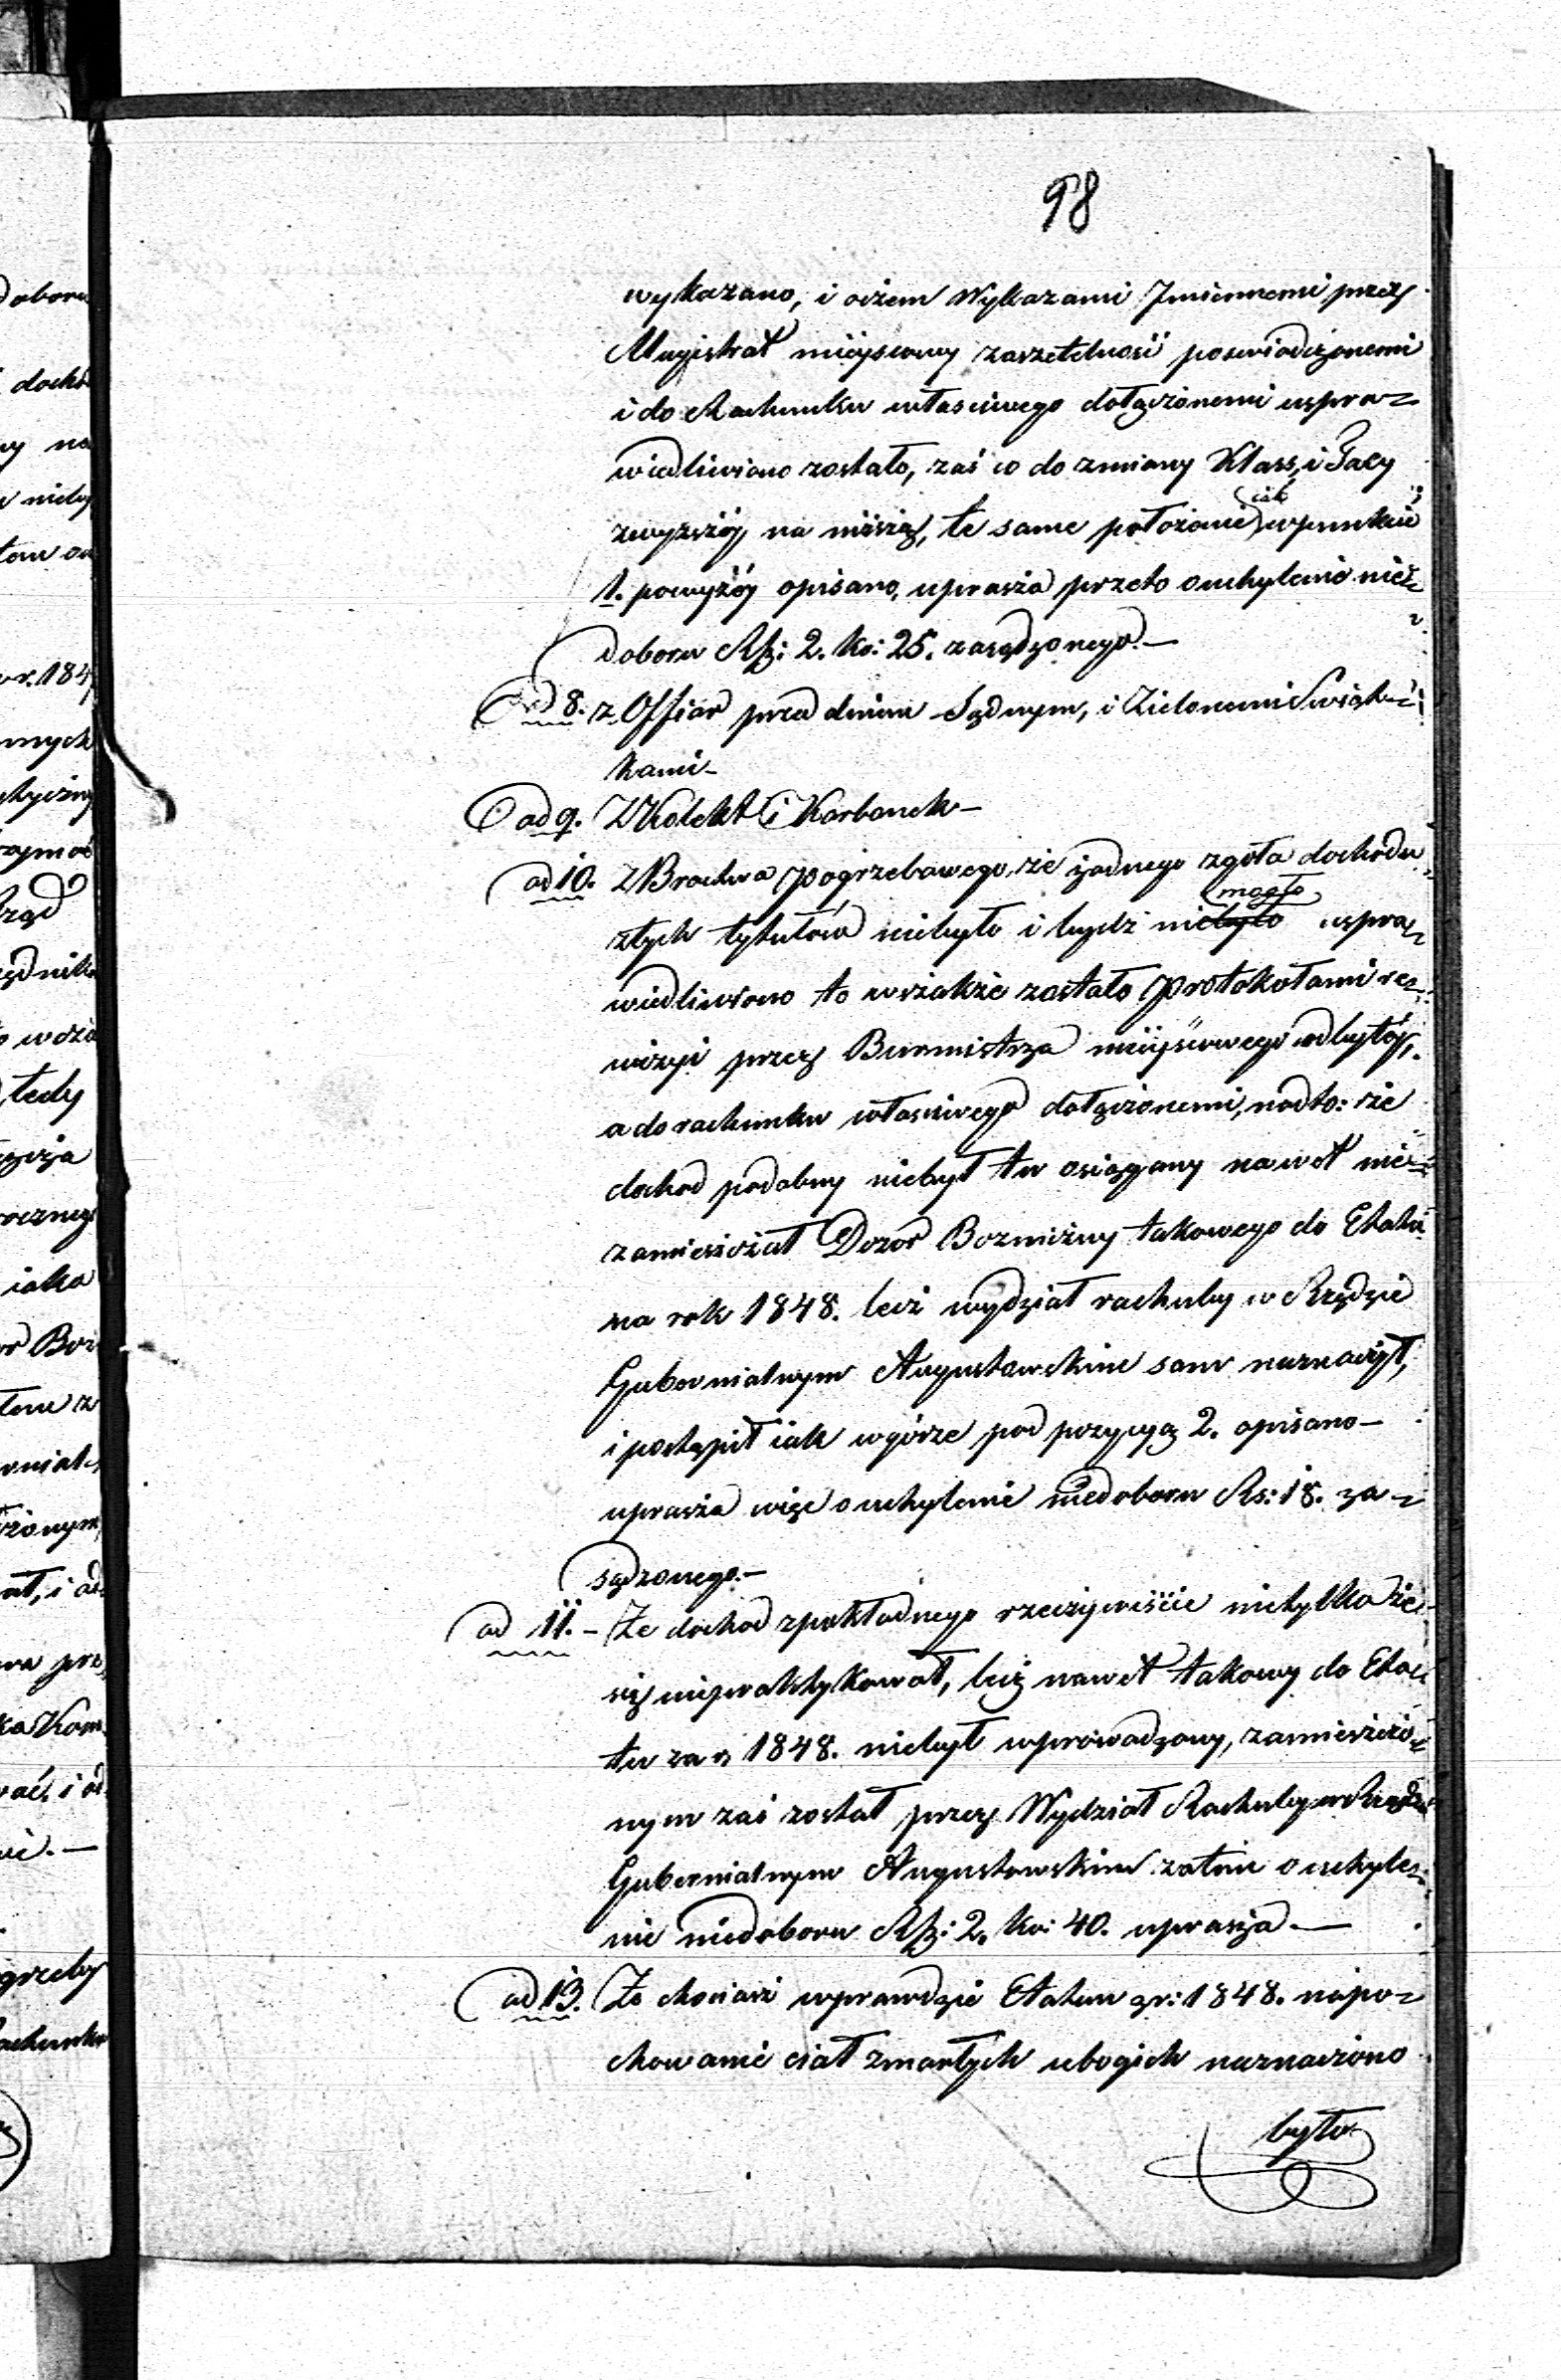 98
wykazano, i oczem Wykazami Jmiennemi przez
Magistrat mieyscowy zarzetelność poswiadczonemi
i do Rachunku własciwego dołączonemi uspra-
wiedliwiono zostało, zaś co do zmiany Klass, i Taxy
zwyzszéj na niższą, te same położenie iak wpunkcie
1. powyżéj opisano, uprasza przeto ouchylenie nie-
doboru Rs: 2. ko: 25. zasądzonego.—
ad 8. z Offiar przed dniem Sądnym, i Zielonemi Swiąt-
kami—
ad 9. Z Kolekt i Karbonek—
ad 10. Z Bractwa pogrzebowego, że żadnego zgoła dochodu
ztych tytułów niebyło i bydź niebyło mogło uspra-
wiedliwiono to wszakże zostało Protokołami re-
wizyi przez Burmistrza mieyscowego odbytéj,
a do rachunku własciwego dołączonemi, nadto: że
dochod podobny niebył tu osiągany nawet nie-
zamieszczał Dozór Bozniczny takowego do Etatu
na rok 1848. lecz wydział rachuby w Rządzie
Gubernialnym Augustowskim sam naznaczył,
i postąpił iak wgórze pod pozycyą 2. opisano—
uprasza więc o uchylenie niedoboru Rs: 18. za-
sądzonego.—
ad 11. – Że dochod zpokładnego rzeczywiście nietylko że
się niepraktykował, lecz nawet takowy do Eta-
tu za r. 1848. niebył wprowadzony, zamieszczo-
nym zaś został przez Wydział Rachuby w Rządzie
Gubernialnym Augustowskim zatem o uchyle-
nie niedoboru Rs: 2. ko: 40. uprasza.—
ad 13. Że chociaż wprawdzie Etatem zr: 1848. napo-
chowanie ciał zmarłych ubogich naznaczono
było